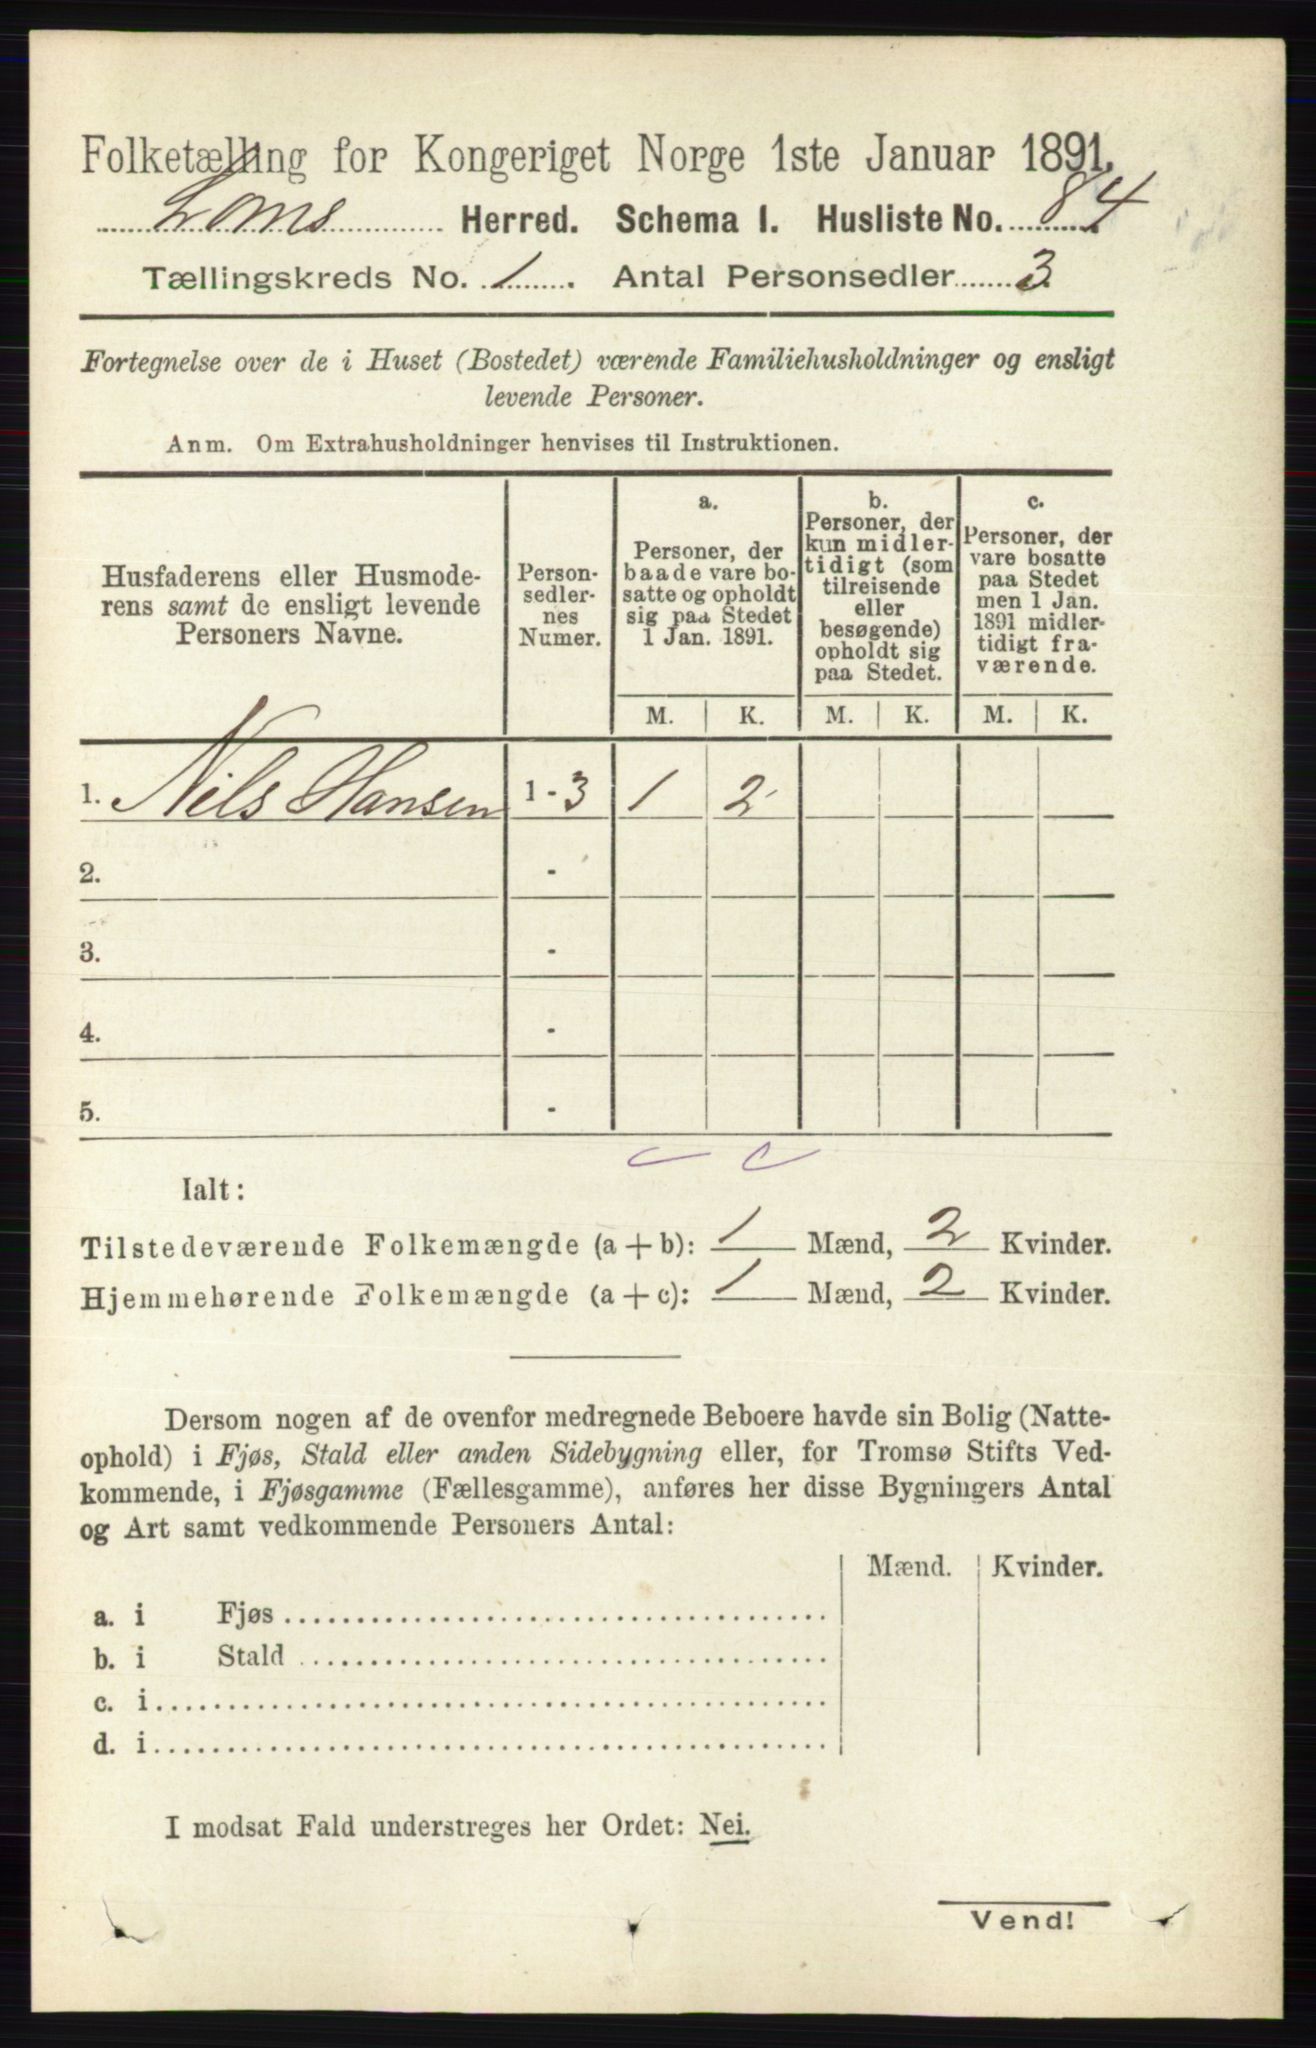 Folketælling for Kongeriget Norge 1ste Januar 1891.
Loms Herred. Schema I. Husliste No. 84
Tællingskreds No. 1. Antal Personsedler 3
Fortegnelse over de i Huset (Bostedet) værende Familiehusholdninger og ensligt
levende Personer.
Anm. Om Extrahusholdninger henvises til Instruktionen.
Husfaderens eller Husmode-
rens samt de ensligt levende
Personers Navne.
Person-
sedler-
nes
Numer.
a.
Personer, der
baade vare bo-
satte og opholdt
sig paa Stedet
1 Jan. 1891.
b.
Personer, der
kun midler-
tidigt (som
tilreisende
eller
besøgende)
opholdt sig
paa Stedet.
c.
Personer, der
vare bosatte
paa Stedet
men 1 Jan.
1891 midler-
tidigt fra-
værende.
M. K. M. K. M. K.
1. Nils Hansen 1 - 3 1 2
2. -
3. -
4. -
5. -
Ialt:
Tilstedeværende Folkemængde (a + b): 1 Mænd, 2 Kvinder.
Hjemmehørende Folkemængde (a + c): 1 Mænd, 2 Kvinder.
Dersom nogen af de ovenfor medregnede Beboere havde sin Bolig (Natte-
ophold) i Fjøs, Stald eller anden Sidebygning eller, for Tromsø Stifts Ved-
kommende, i Fjøsgamme (Fællesgamme), anføres her disse Bygningers Antal
og Art samt vedkommende Personers Antal:
Mænd. Kvinder.
a. i Fjøs
b. i Stald
c. i
d. i
I modsat Fald understreges her Ordet: Nei.
Vend!